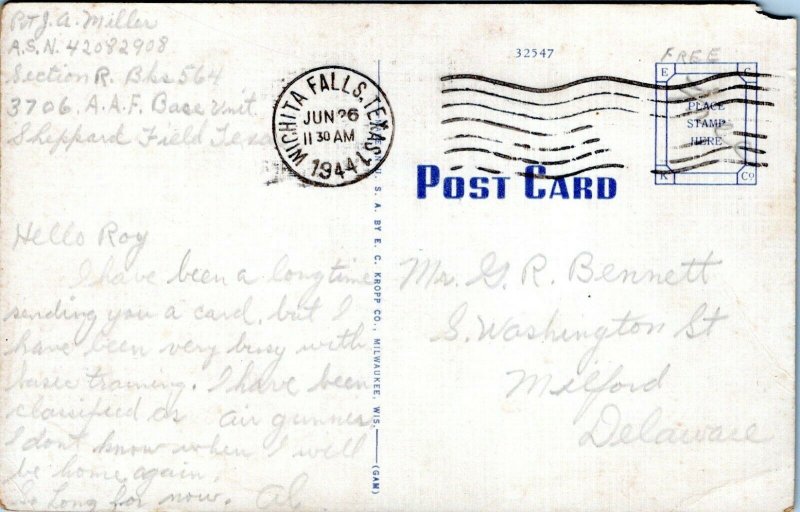 Pvt J. A. Miller
A.S.N. 42082908
Section R. Bks 564
3706. A.A.F. Base Unit
Sheppard Field Texas
WICHITA FALLS, TEXAS
JUN 26
11 30 AM
1944
32547
FREE
E C
PLACE
STAMP
HERE
K Co
POST CARD
U. S. A. BY E. C. KROPP CO., MILWAUKEE, WIS.
(GAM)
Hello Roy
I have been a long time
sending you a card, but I
have been very busy with
basic training. I have been
classified as air gunner
I dont know when I will
be home again.
So long for now. Al
Mr. G. R. Bennett
S. Washington St
Milford
Delaware